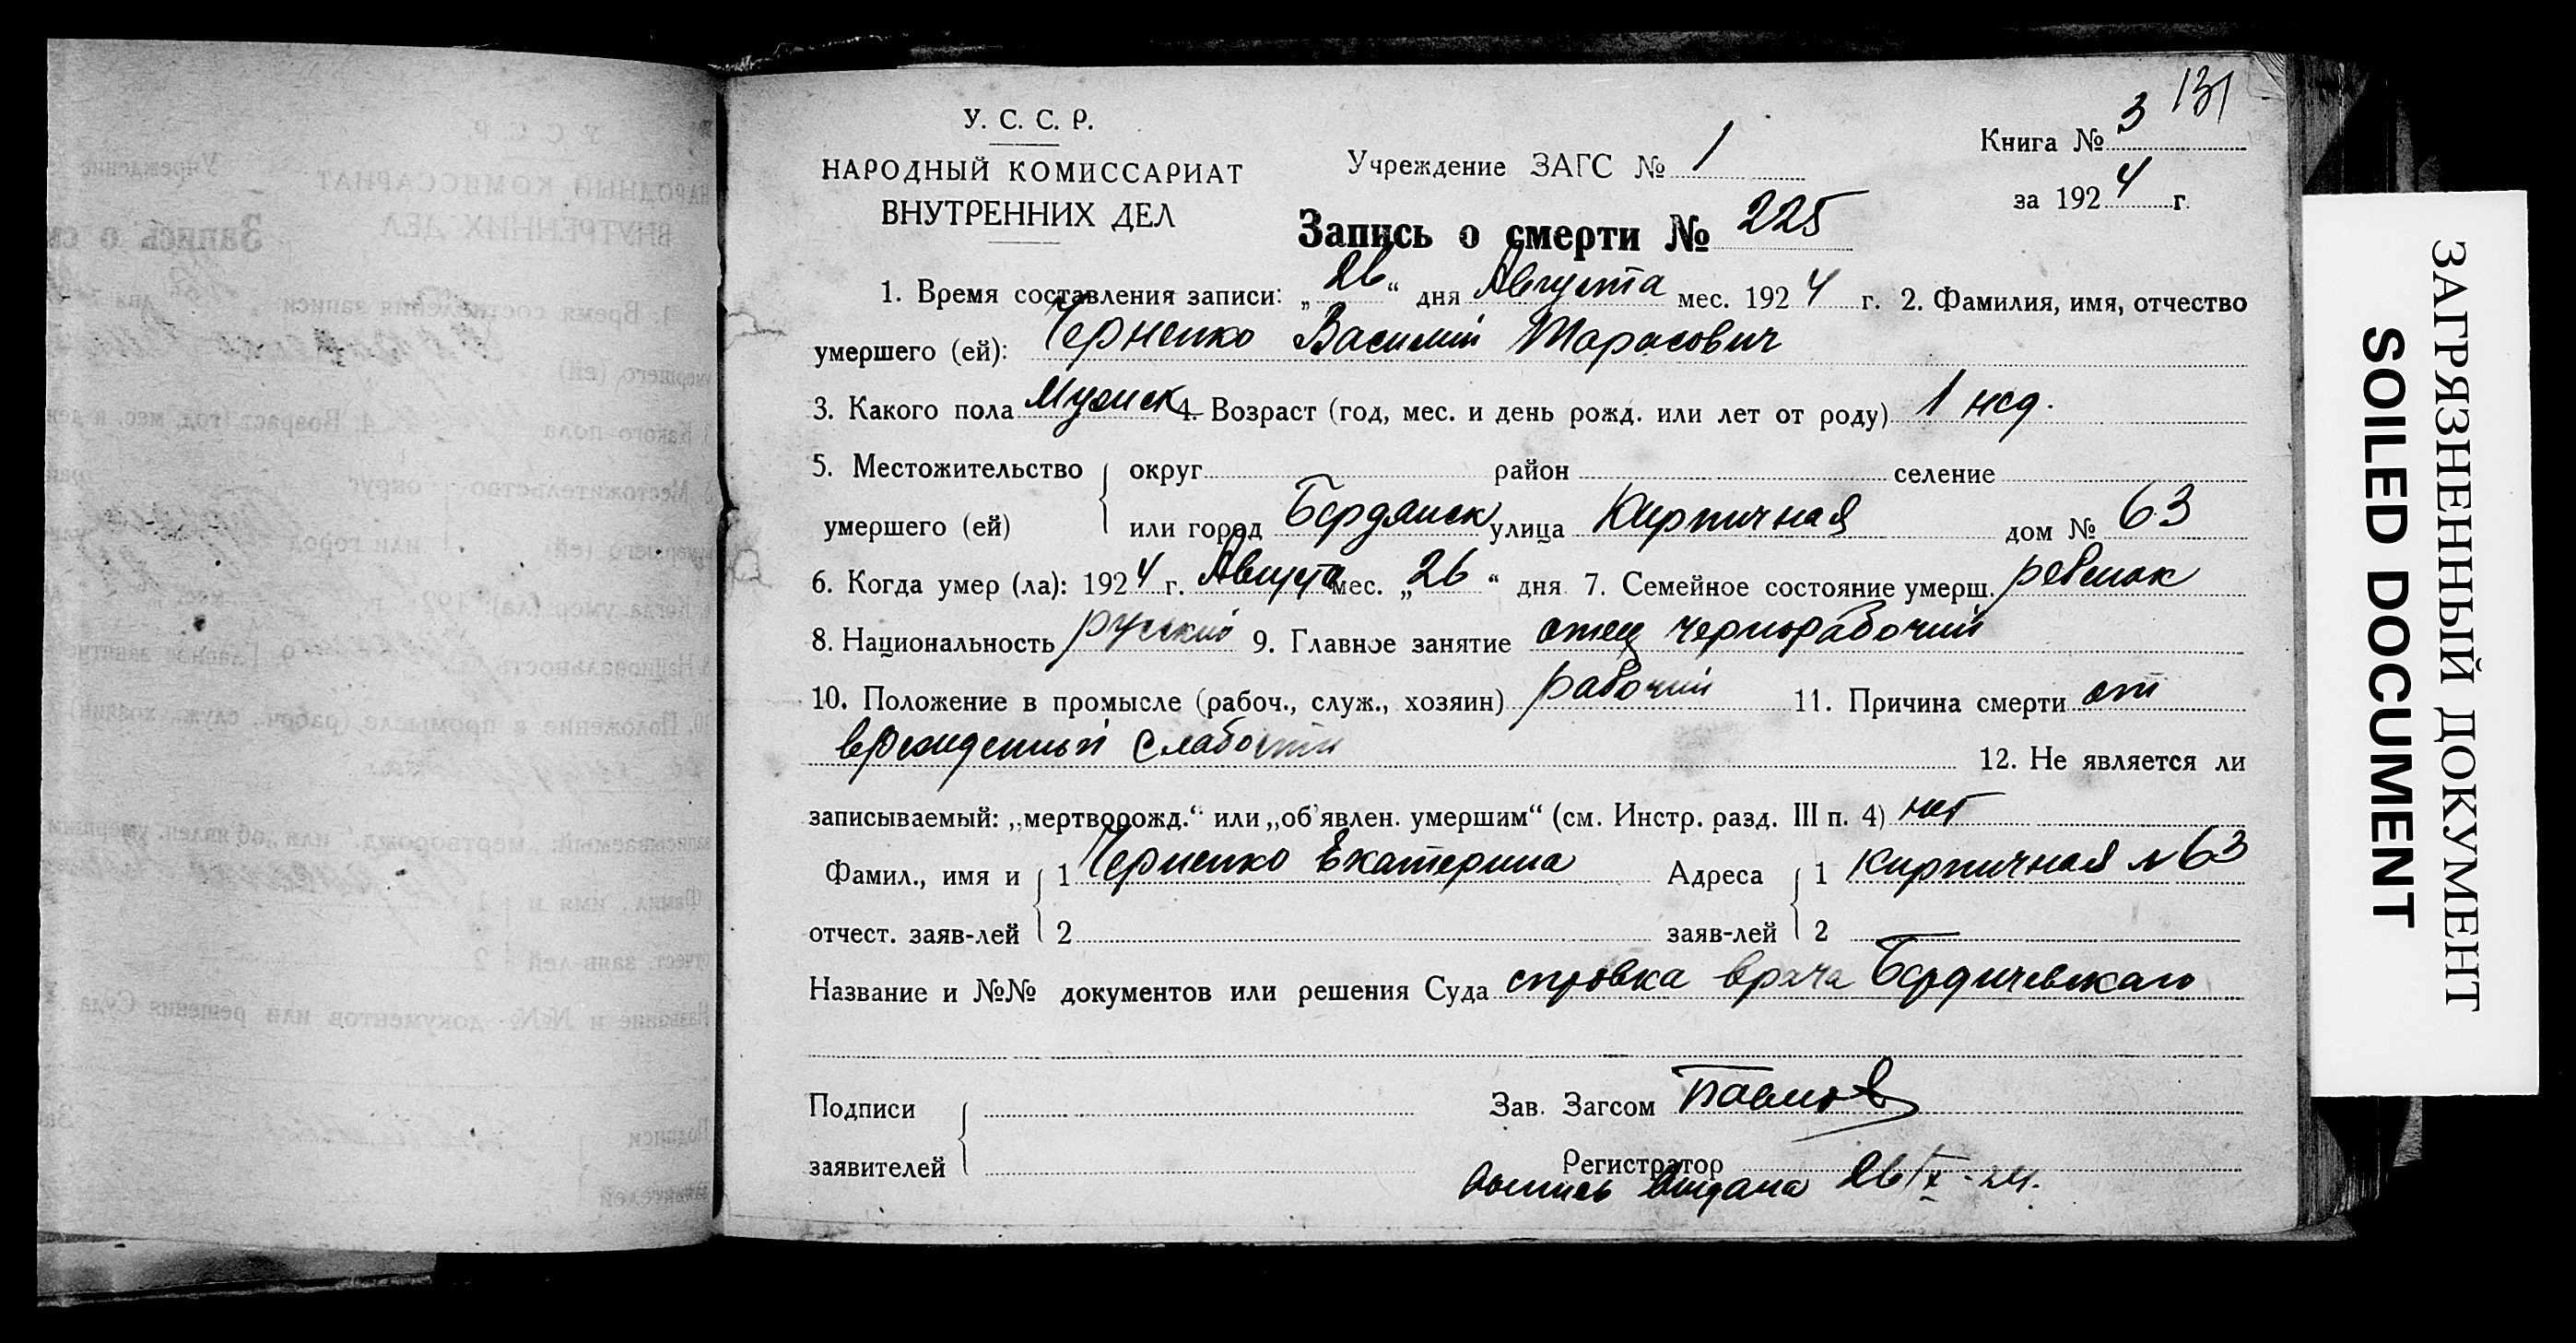 131
У. С. С. Р.
НАРОДНЫЙ КОМИССАРИАТ
ВНУТРЕННИХ ДЕЛ
Учреждение ЗАГС № 1
Книга № 3
за 1924 г.
Запись о смерти № 225
1. Время составления записи: „26“ дня Августа мес. 1924 г. 2. Фамилия, имя, отчество
умершего (ей): Черненко Василий Тарасович
3. Какого пола Мужск 4. Возраст (год, мес. и день рожд. или лет от роду) 1 нед.
5. Местожительство округ район селение
умершего (ей) или город Бердянск улица Кирпичная дом № 63
6. Когда умер (ла): 1924 г. Августа мес. „26“ дня 7. Семейное состояние умерш. ребенок
8. Национальность русский 9. Главное занятие отец чернорабочий
10. Положение в промысле (рабоч., служ., хозяин) рабочий 11. Причина смерти от
врожденный слабости
12. Не является ли
записываемый: „мертворожд.“ или „об'явлен. умершим“ (см. Инстр. разд. III п. 4) нет
Фамил., имя и 1 Черненко Екатерина Адреса 1 Кирпичная № 63
отчест. заяв-лей 2 заяв-лей 2
Название и №№ документов или решения Суда справка врача Бердичевскаго
Подписи Зав. Загсом Павлов
заявителей Регистратор
выдана 26/IX-24.
ЗАГРЯЗНЕННЫЙ ДОКУМЕНТ
SOILED DOCUMENT